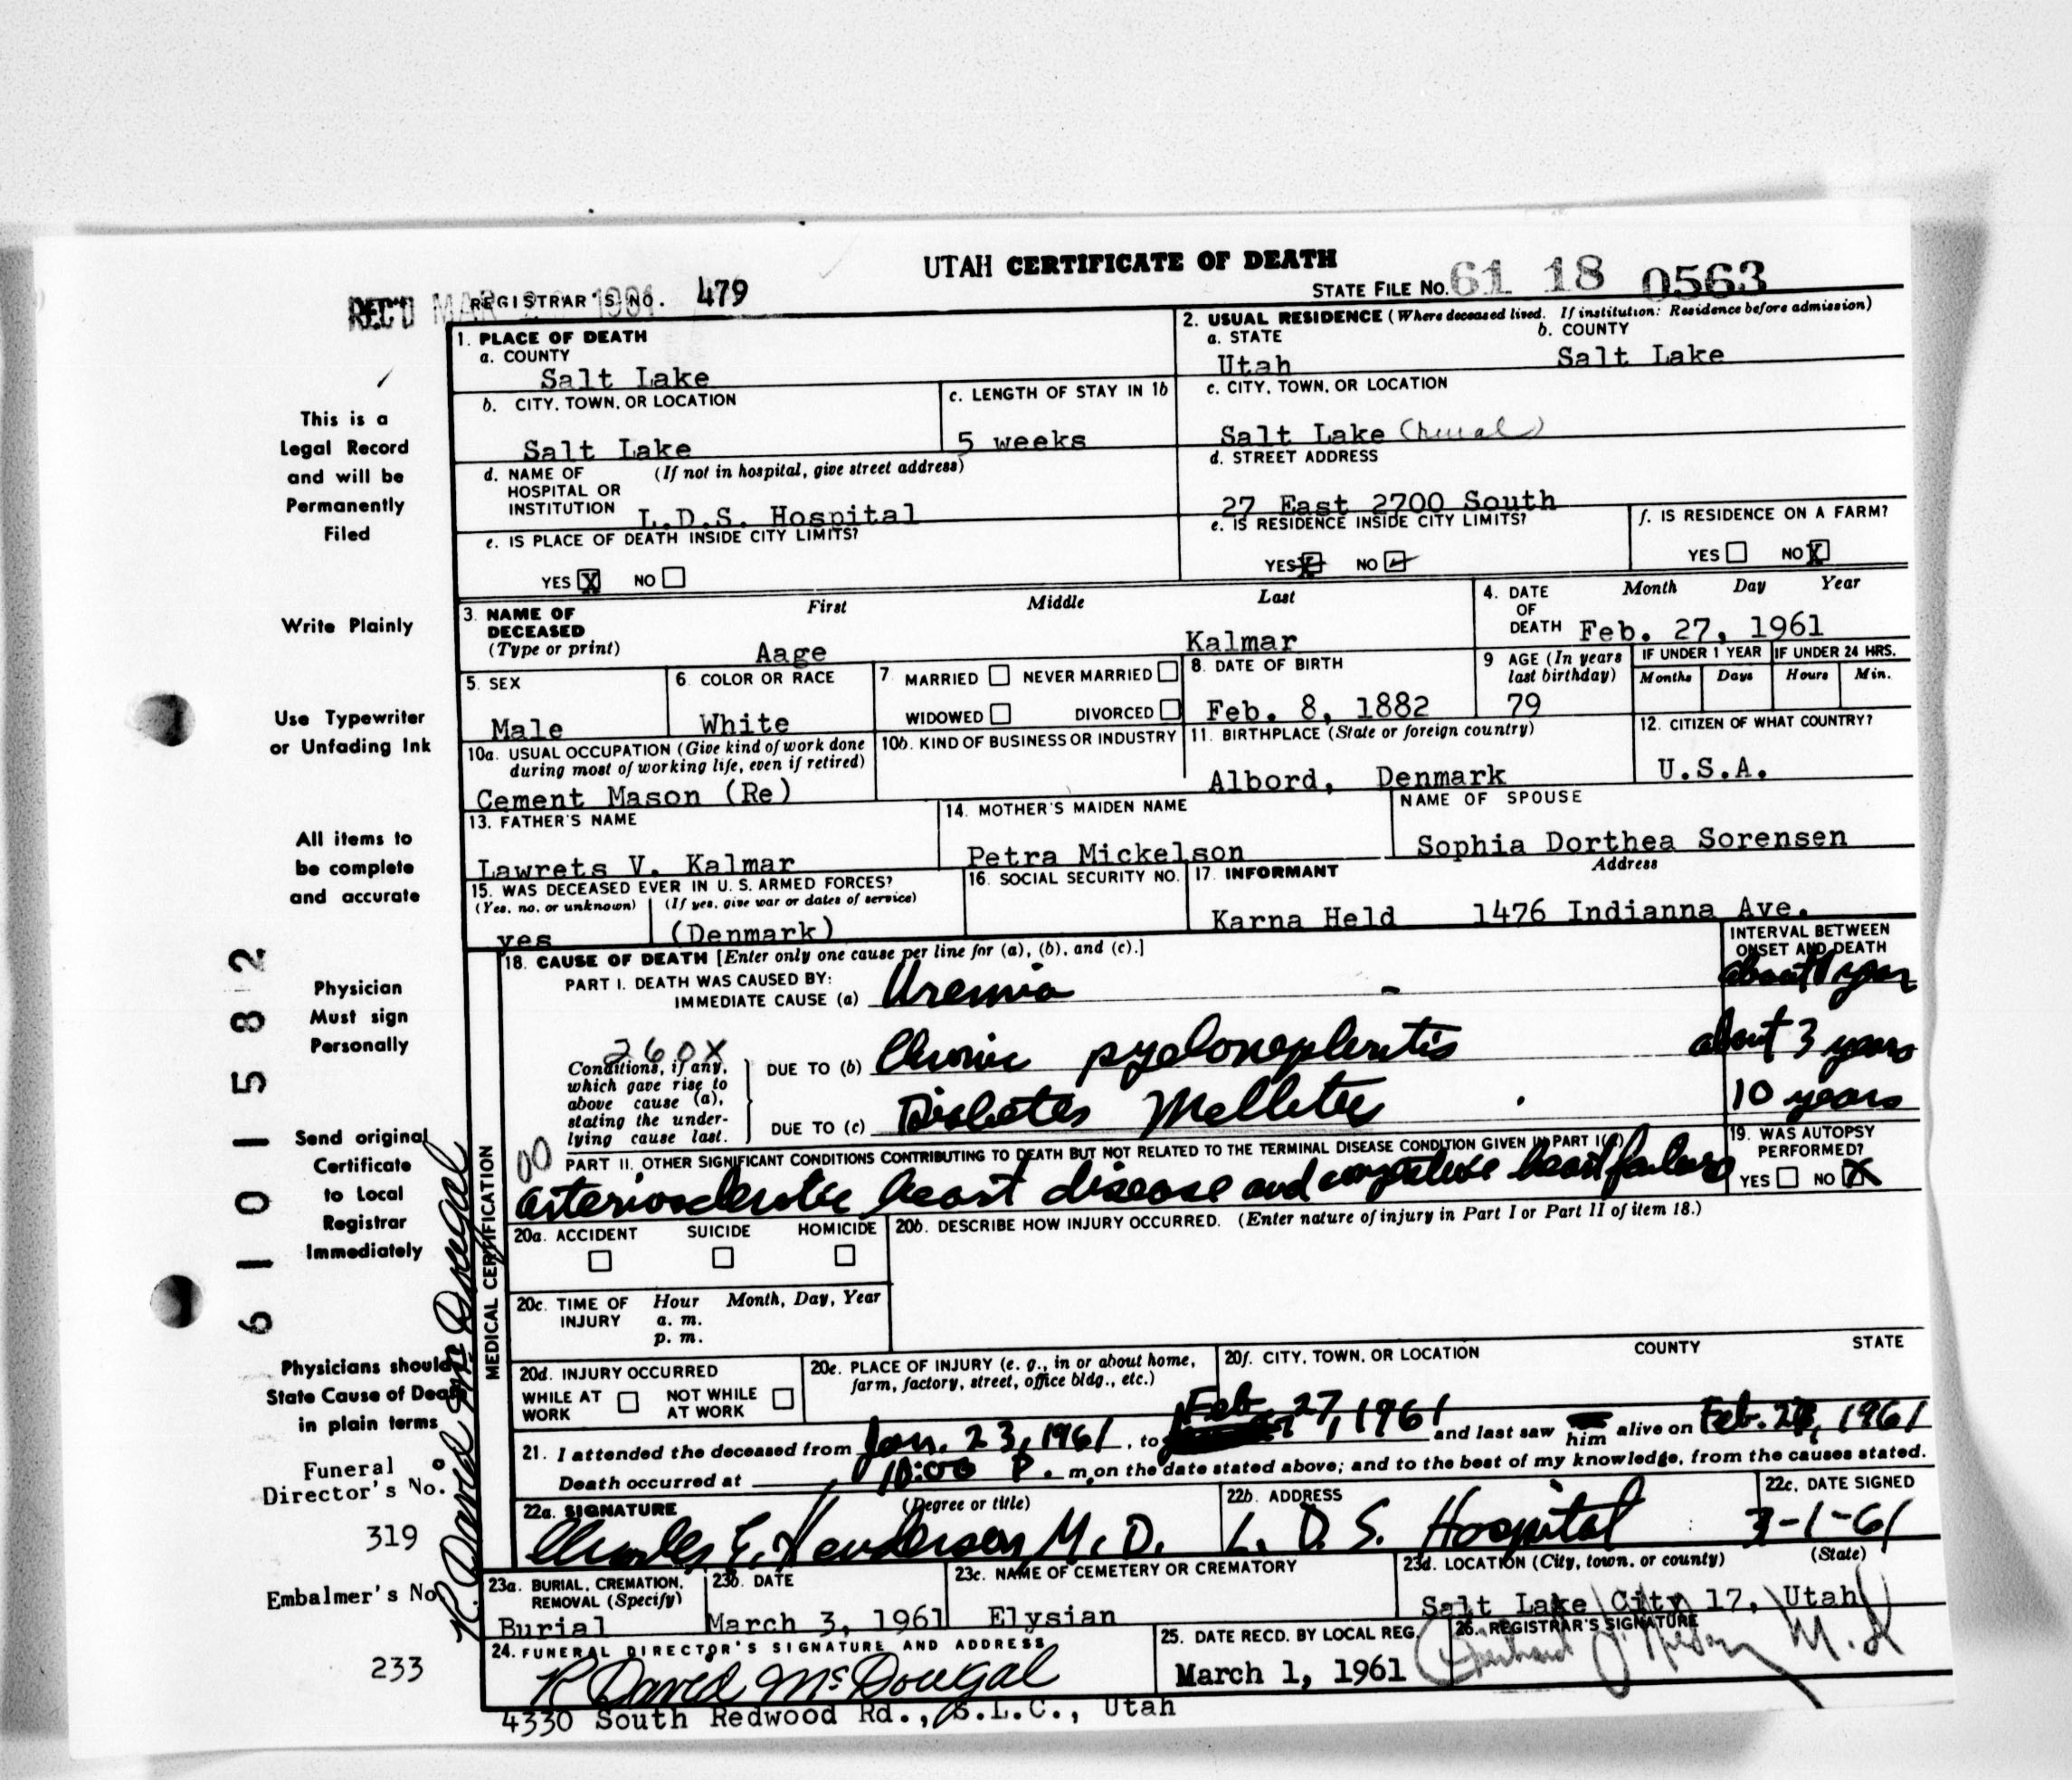 UTAH CERTIFICATE OF DEATH
REC'D MAR 1961 REGISTRAR'S NO. 479 STATE FILE NO. 61 18 0563
1. PLACE OF DEATH
a. COUNTY
Salt Lake
2. USUAL RESIDENCE (Where deceased lived. If institution: Residence before admission)
a. STATE b. COUNTY
Utah Salt Lake
b. CITY, TOWN, OR LOCATION
Salt Lake
c. LENGTH OF STAY IN 1b
5 weeks
c. CITY, TOWN, OR LOCATION
Salt Lake (rural)
d. NAME OF (If not in hospital, give street address)
HOSPITAL OR
INSTITUTION L.D.S. Hospital
d. STREET ADDRESS
27 East 2700 South
e. IS PLACE OF DEATH INSIDE CITY LIMITS?
YES X NO
e. IS RESIDENCE INSIDE CITY LIMITS?
YES NO
f. IS RESIDENCE ON A FARM?
YES NO X
3. NAME OF
DECEASED
(Type or print)
First Middle Last
Aage Kalmar
4. DATE
OF
DEATH
Month Day Year
Feb. 27, 1961
5. SEX
Male
6. COLOR OR RACE
White
7 MARRIED NEVER MARRIED
WIDOWED DIVORCED
8. DATE OF BIRTH
Feb. 8, 1882
9 AGE (In years
last birthday)
79
IF UNDER 1 YEAR IF UNDER 24 HRS.
Months Days Hours Min.
10a. USUAL OCCUPATION (Give kind of work done
during most of working life, even if retired)
Cement Mason (Re)
10b. KIND OF BUSINESS OR INDUSTRY
11. BIRTHPLACE (State or foreign country)
Albord, Denmark
12. CITIZEN OF WHAT COUNTRY?
U.S.A.
13. FATHER'S NAME
Lawrets V. Kalmar
14. MOTHER'S MAIDEN NAME
Petra Mickelson
NAME OF SPOUSE
Sophia Dorthea Sorensen
15. WAS DECEASED EVER IN U. S. ARMED FORCES?
(Yes, no, or unknown) (If yes, give war or dates of service)
yes (Denmark)
16. SOCIAL SECURITY NO.
17. INFORMANT Address
Karna Held 1476 Indianna Ave.
MEDICAL CERTIFICATION
18. CAUSE OF DEATH [Enter only one cause per line for (a), (b), and (c).]
INTERVAL BETWEEN
ONSET AND DEATH
PART I. DEATH WAS CAUSED BY:
IMMEDIATE CAUSE (a) Uremia about 1 year
260X
Conditions, if any,
which gave rise to
above cause (a),
stating the under-
lying cause last.
DUE TO (b) Chronic pyelonephritis about 3 years
DUE TO (c) Diabetes Mellitus 10 years
00
PART II. OTHER SIGNIFICANT CONDITIONS CONTRIBUTING TO DEATH BUT NOT RELATED TO THE TERMINAL DISEASE CONDITION GIVEN IN PART I(a)
arteriosclerotic heart disease and congestive heart failure
19. WAS AUTOPSY
PERFORMED?
YES NO X
20a. ACCIDENT SUICIDE HOMICIDE
20b. DESCRIBE HOW INJURY OCCURRED. (Enter nature of injury in Part I or Part II of item 18.)
20c. TIME OF Hour Month, Day, Year
INJURY a. m.
p. m.
20d. INJURY OCCURRED
WHILE AT NOT WHILE
WORK AT WORK
20e. PLACE OF INJURY (e. g., in or about home,
farm, factory, street, office bldg., etc.)
20f. CITY, TOWN, OR LOCATION COUNTY STATE
21. I attended the deceased from Jan. 23, 1961, to Feb. 27, 1961 and last saw him alive on Feb. 27, 1961
Death occurred at 10:00 P. m, on the date stated above; and to the best of my knowledge, from the causes stated.
22a. SIGNATURE (Degree or title)
Charles E. Henderson M. D.
22b. ADDRESS
L. D. S. Hospital
22c. DATE SIGNED
3-1-61
23a. BURIAL, CREMATION,
REMOVAL (Specify)
Burial
23b. DATE
March 3, 1961
23c. NAME OF CEMETERY OR CREMATORY
Elysian
23d. LOCATION (City, town, or county) (State)
Salt Lake City 17, Utah
24. FUNERAL DIRECTOR'S SIGNATURE AND ADDRESS
R David McDougal
4330 South Redwood Rd., S.L.C., Utah
25. DATE RECD. BY LOCAL REG.
March 1, 1961
26. REGISTRAR'S SIGNATURE
This is a
Legal Record
and will be
Permanently
Filed
Write Plainly
Use Typewriter
or Unfading Ink
All items to
be complete
and accurate
Physician
Must sign
Personally
Send original
Certificate
to Local
Registrar
Immediately
Physicians should
State Cause of Death
in plain terms
Funeral
Director's No.
319
Embalmer's No.
233
61015582
R. David McDougal